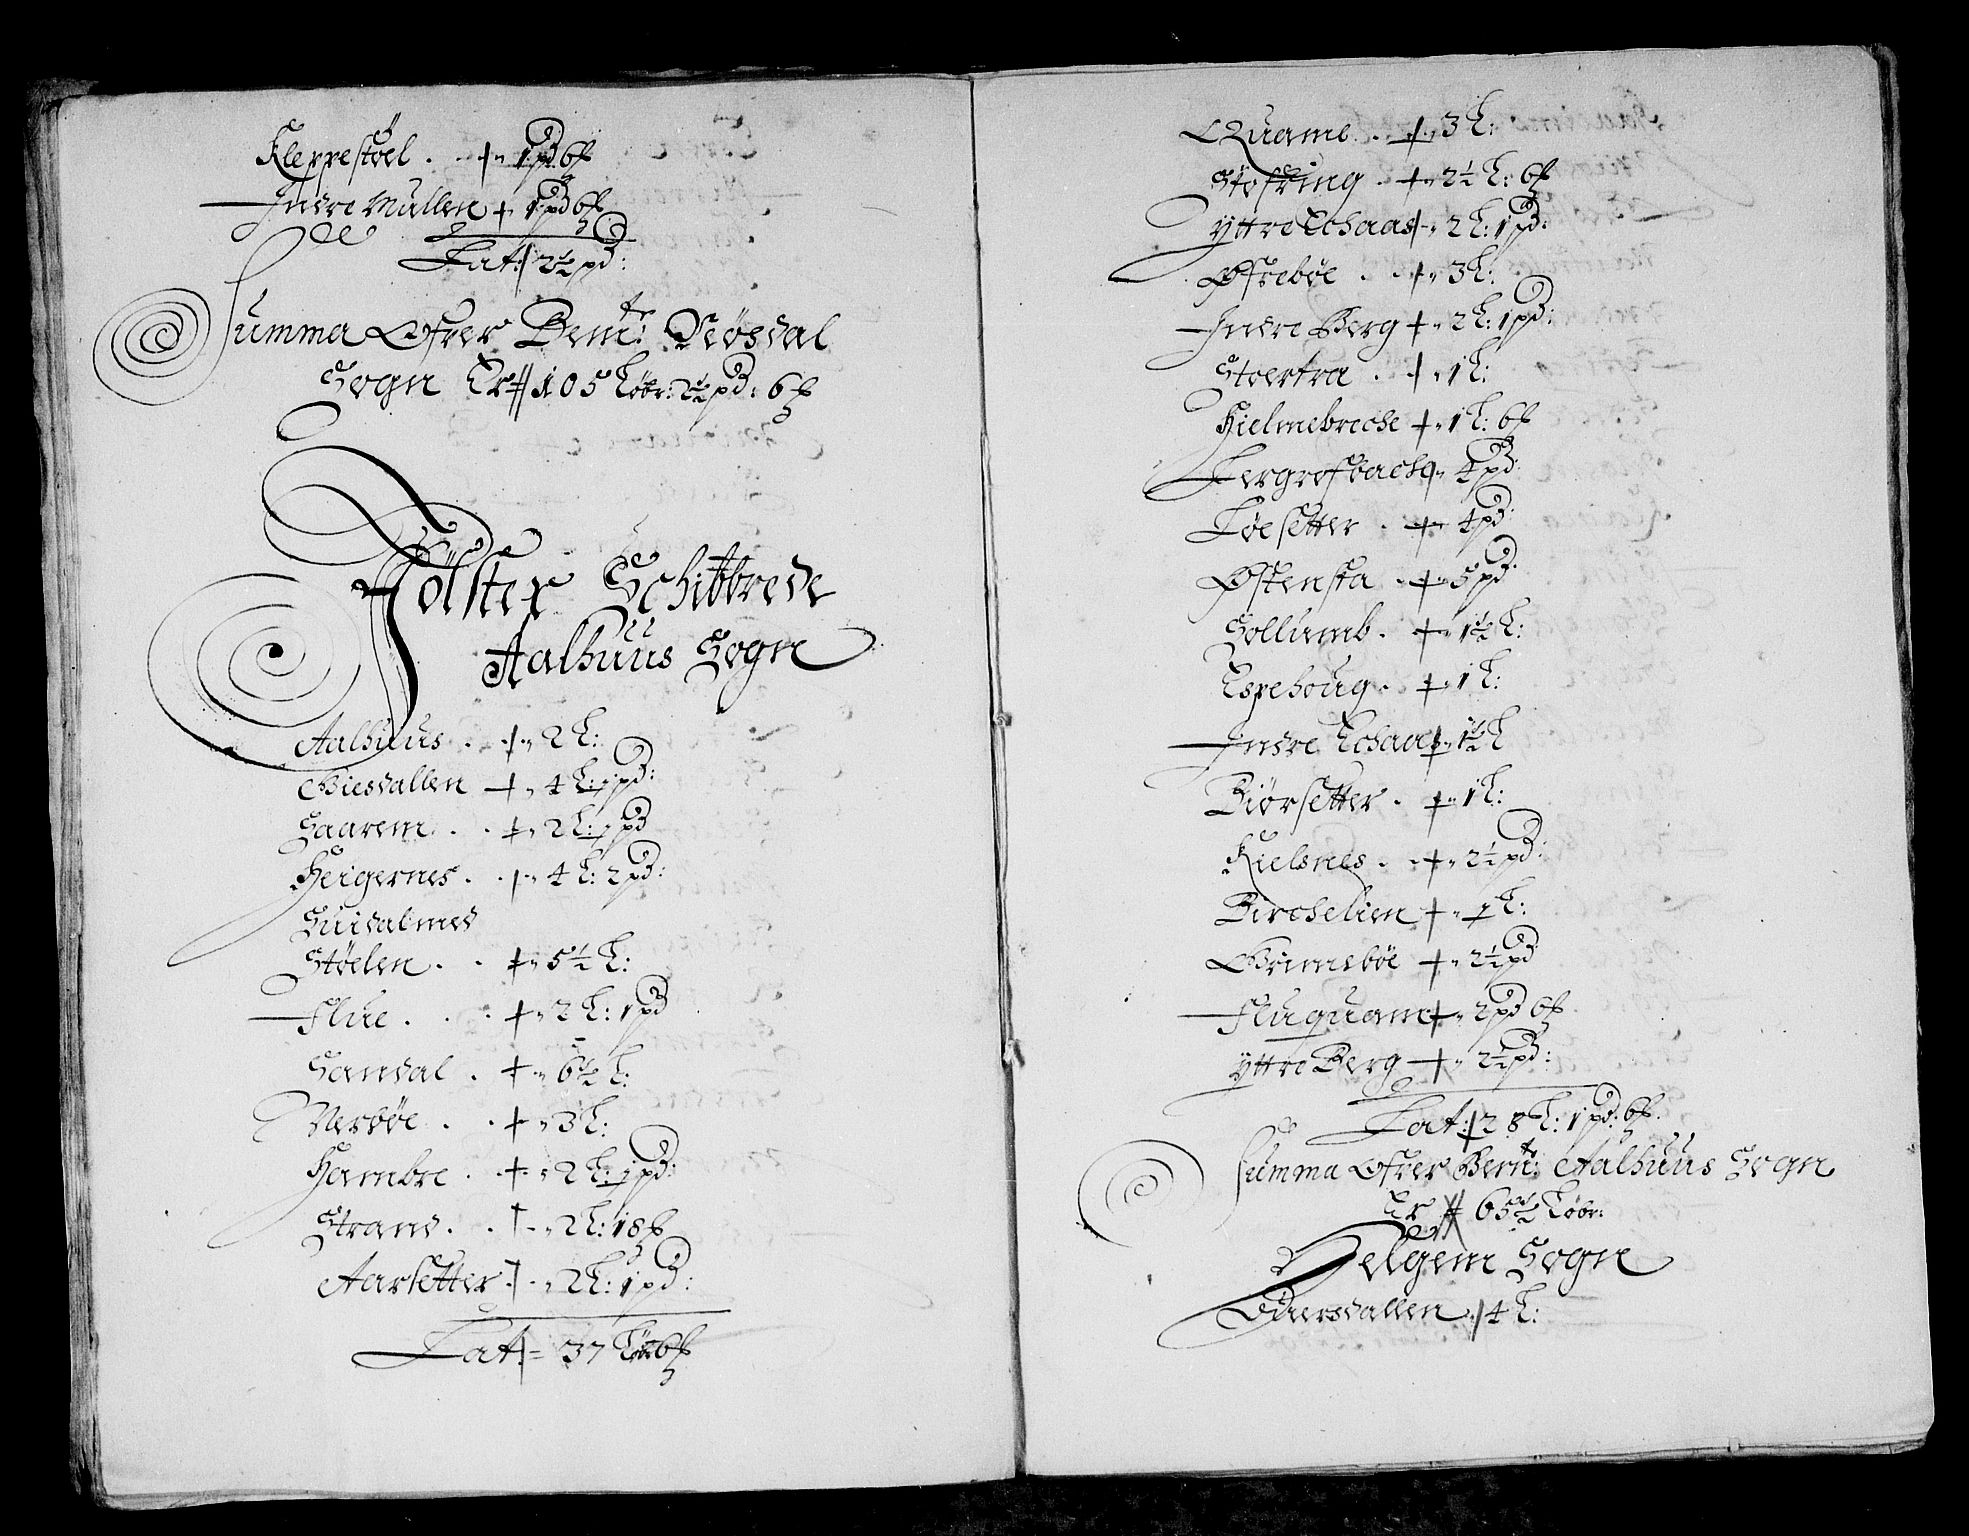 Kleppestöel . + „ 1 pd 6 ß
Indre Mullen + „ 1 pd 6 ß
Lat: 2½ pd:
Summa Ofver Bem:te Nösdal
Sogn Er # 105 Löbr: 2½ pd: 6 ß
Jölster Schibbrede
Aalhuus Sogn
Aalhuus . + „ 2 L:
Giesdallen + „ 4 L: 1 pd:
Saarem . . + „ 2 L: 1 pd
Heigernes . + „ 4 L: 2 pd:
Huidalmed
Støelen . . + „ 5½ L:
Flue . . . + „ 2 L: 1 pd
Sandal . + „ 6½ L:
Nerbøe . . + „ 3 L:
Hambre . + „ 2 L: 1 pd:
Strand . . + „ 2 L: 18 ß
Aarsetter + „ 2 L: 1 pd:
Lat: = 37 Löbr 6 ß
Quame . + „ 3 L:
Støfring . + „ 2½ L: 6 ß
Yttre Echaas + „ 2 L: 1 pd:
Øfrebøe . . + „ 3 L:
Indre Berg + „ 2 L: 1 pd:
Stoertra . + „ 1 L:
Hielmebreche + „ 1 L: 6 ß
„ 4 pd:
Løesetter . + „ 4 pd:
Østensta . + „ 5 pd:
Sollumb . + „ 1½ L:
Espehoug . + „ 1 L:
Indre Echaas + „ 1½ L
Biørsetter . + „ 1 L:
Kielsnes . . + „ 2½ pd:
Birchelien + „ 1 L:
Grimsbøe + „ 2½ pd
Fluquame + „ 2 pd 6 ß
Yttre Berg + „ 2½ pd:
Lat: 28 L: 1 pd: 6 ß.
Summa Ofver Bem:te Aalhuus Sogn
Er # 65½ Löbr:
Helgem Sogn
4 L: